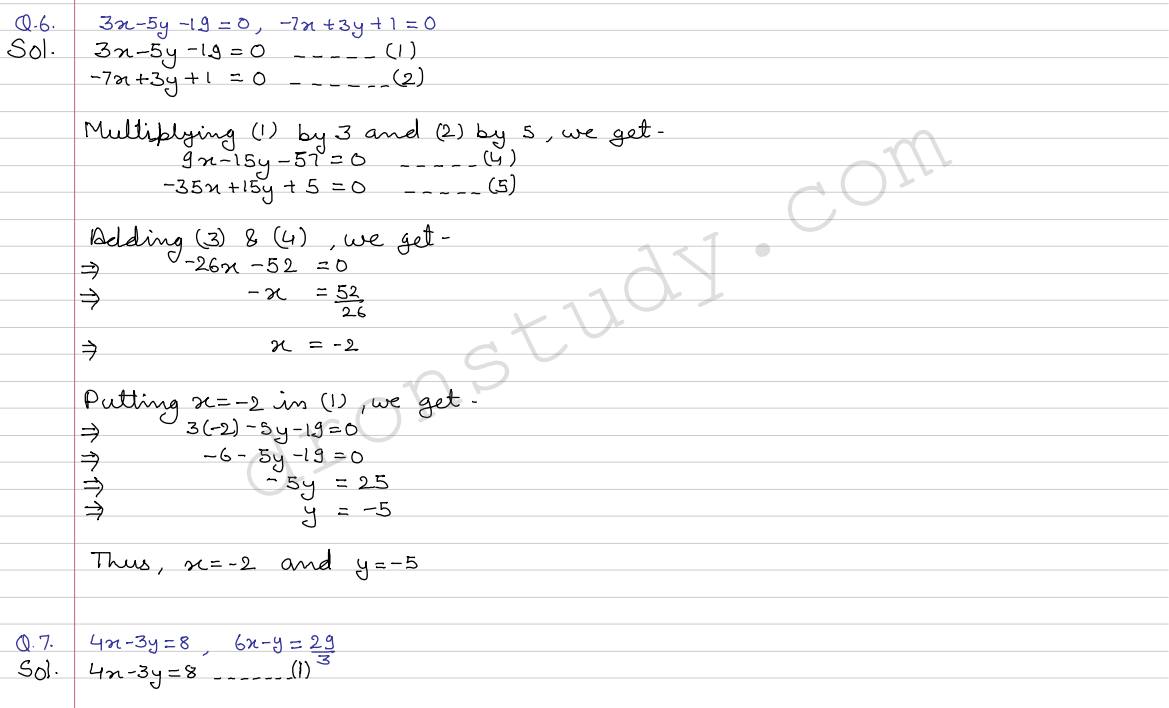 Q.6. 3x-5y-19=0, -7x+3y+1=0
Sol. 3x-5y-19=0 -----(1)
-7x+3y+1=0 ------(2)
Multiplying (1) by 3 and (2) by 5, we get-
9x-15y-57=0 -----(4)
-35x+15y+5=0 -----(5)
Adding (3) & (4), we get-
⇒ -26x-52=0
⇒ -x = 52/26
⇒ x = -2
Putting x=-2 in (1), we get-
⇒ 3(-2)-5y-19=0
⇒ -6-5y-19=0
⇒ -5y = 25
⇒ y = -5
Thus, x=-2 and y=-5
Q.7. 4x-3y=8, 6x-y=29/3
Sol. 4x-3y=8 -------(1)
dronstudy.com